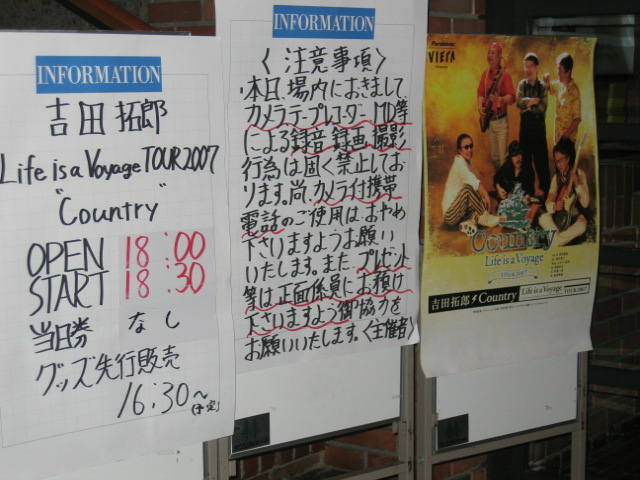 INFORMATION
吉田 拓郎
Life is a Voyage TOUR2007
"Country"
OPEN 18:00
START 18:30
当日券 なし
グッズ先行販売
16:30〜
(予定)
INFORMATION
〈注意事項〉
本日、場内におきまして
カメラ.テープレコーダー MD等
による録音.録画.撮影
行為は固く禁止してお
ります。尚、カメラ付携帯
電話のご使用は、おやめ
下さいますようお願い
いたします。また、プレゼント
等は正面係員にお預け
下さいますよう御協力を
お願いいたします。〈主催者〉
Panasonic
VIERA
Country
Life is a Voyage
TOUR 2007
吉田拓郎 Country Life is a Voyage TOUR 2007